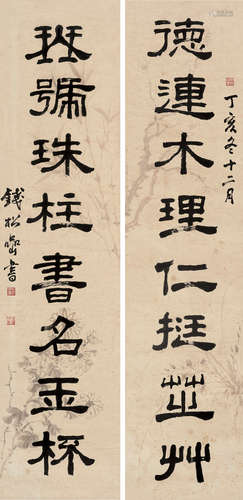 德連木理仁挺芝艸
丁亥冬十二月
班號珠柱書名玉杯
錢松嵒書